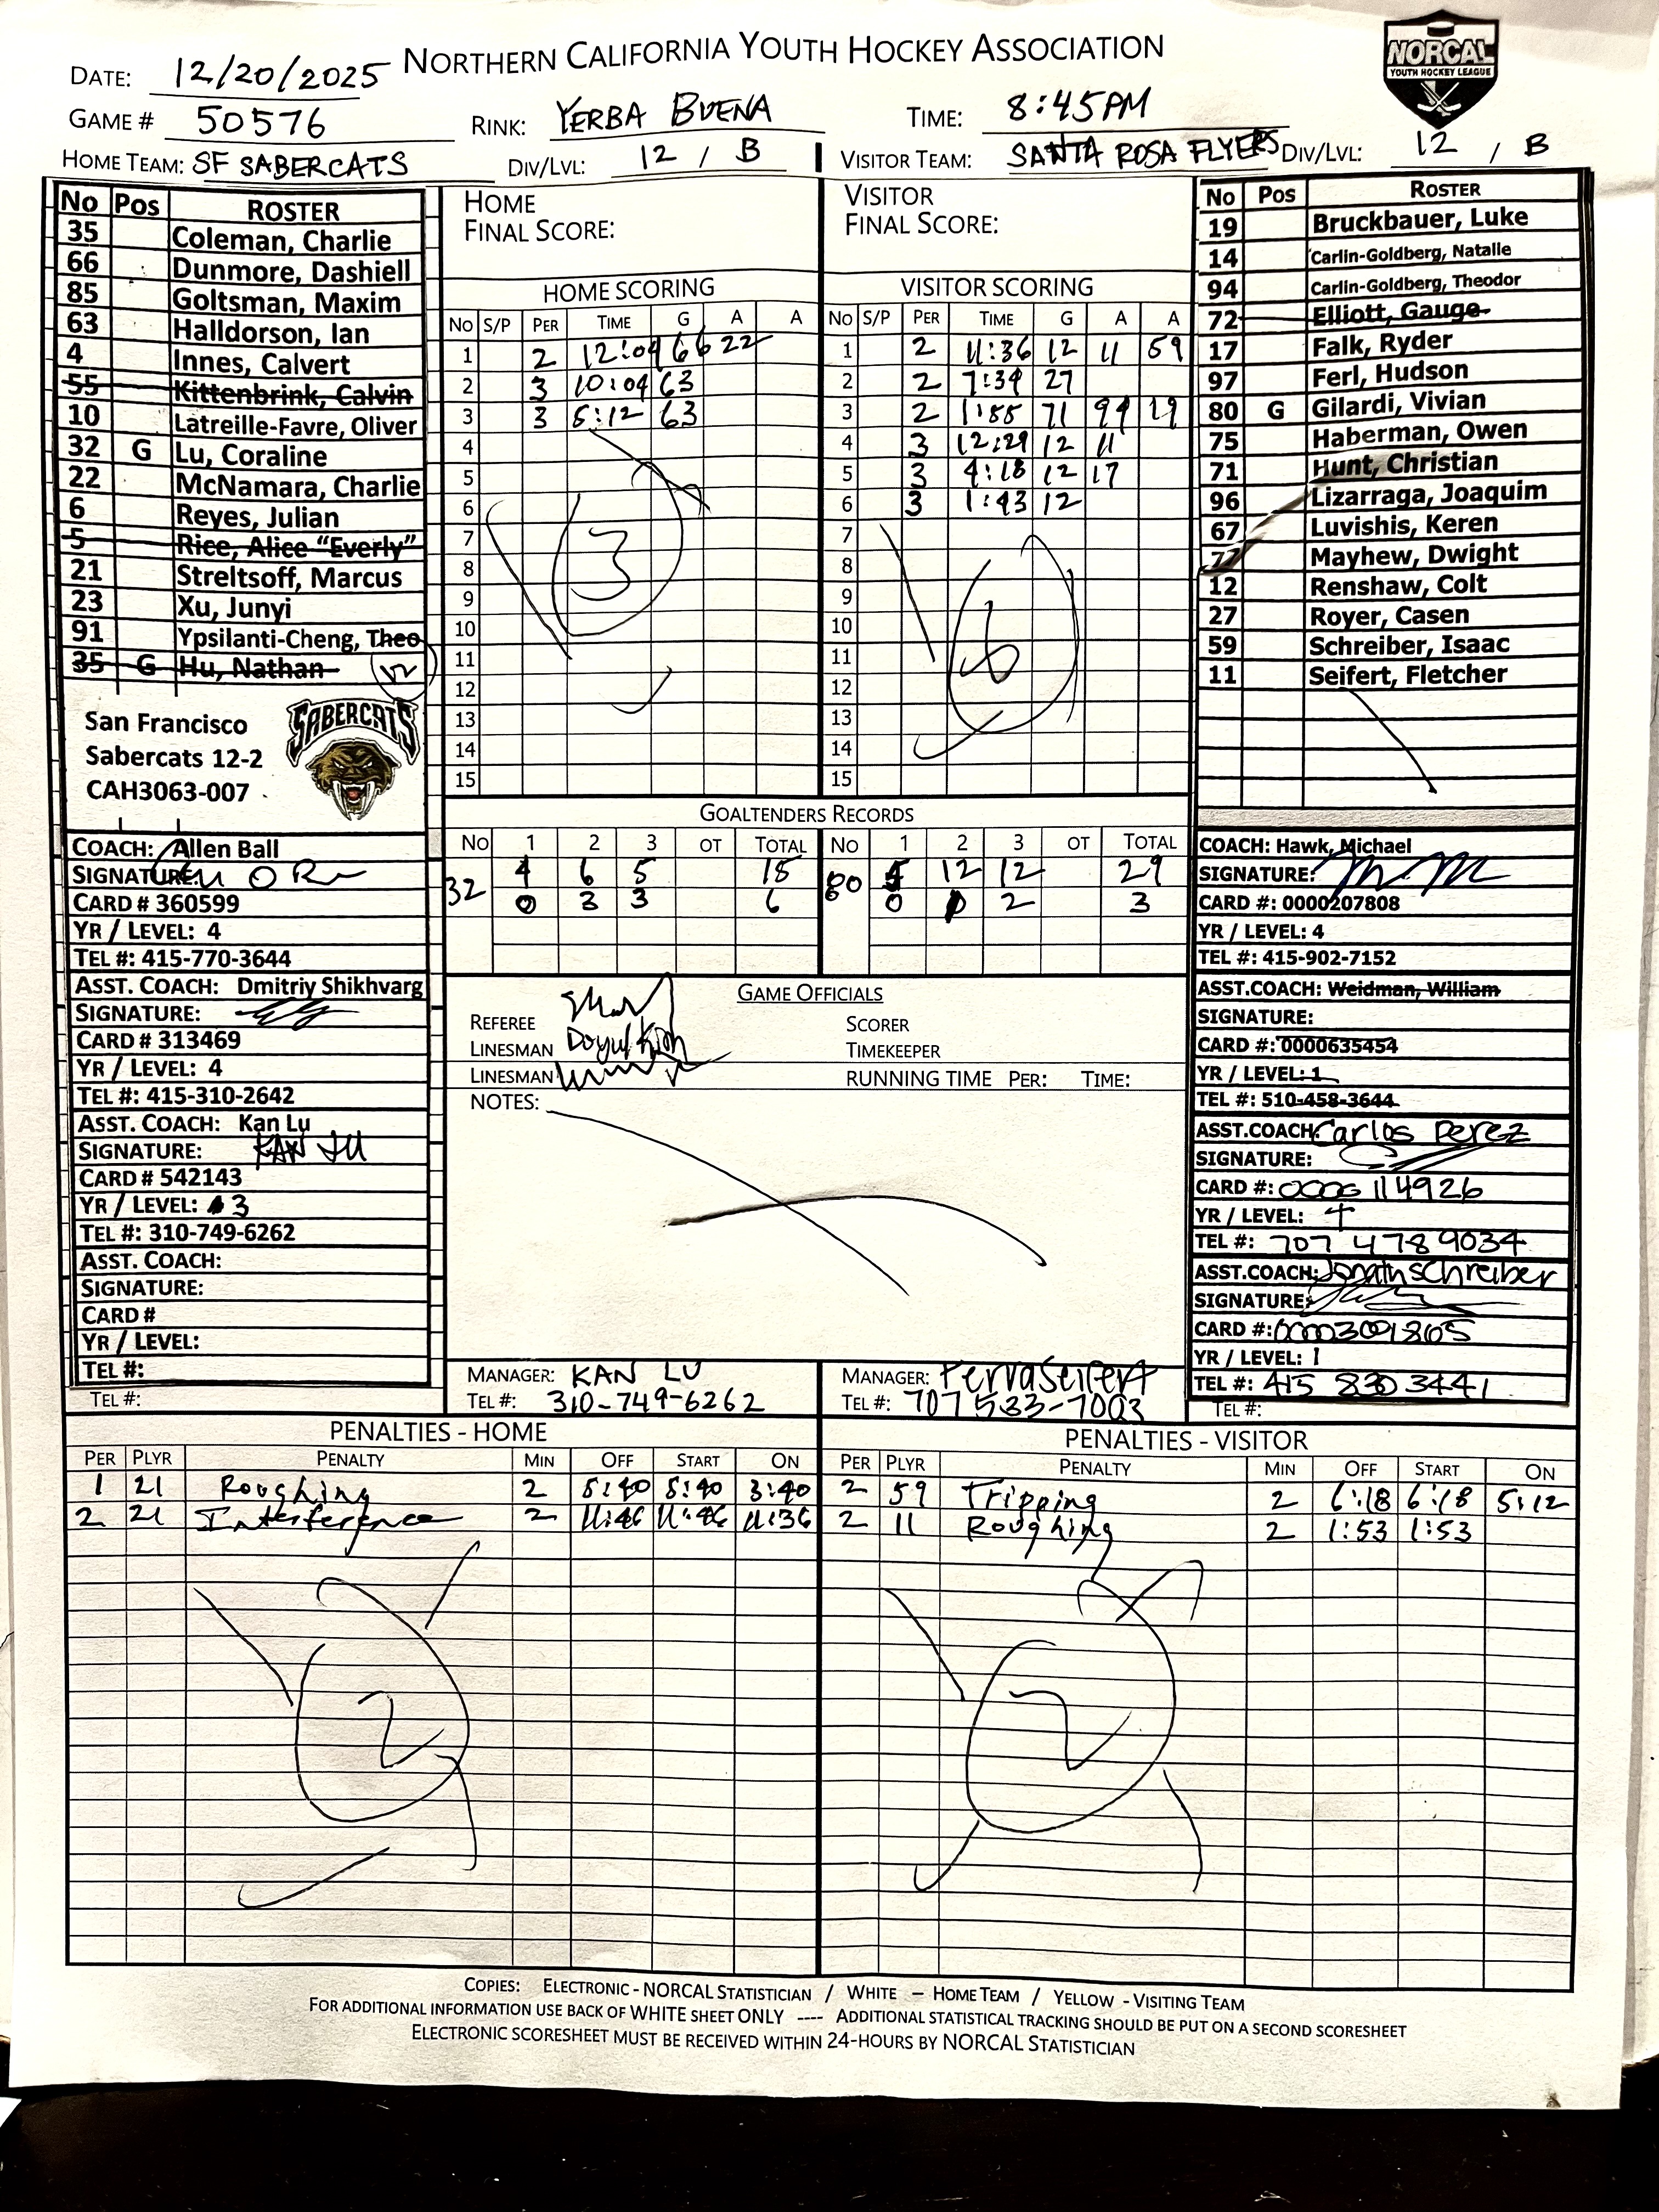 NORTHERN CALIFORNIA YOUTH HOCKEY ASSOCIATION
NORCAL
YOUTH HOCKEY LEAGUE
DATE: 12/20/2025
GAME # 50576
RINK: YERBA BUENA
TIME: 8:45PM
HOME TEAM: SF SABERCATS
DIV/LVL: 12 / B
VISITOR TEAM: SANTA ROSA FLYERS
DIV/LVL: 12 / B
No Pos ROSTER
35 Coleman, Charlie
66 Dunmore, Dashiell
85 Goltsman, Maxim
63 Halldorson, Ian
4 Innes, Calvert
55 Kittenbrink, Calvin
10 Latreille-Favre, Oliver
32 G Lu, Coraline
22 McNamara, Charlie
6 Reyes, Julian
5 Rice, Alice "Everly"
21 Streltsoff, Marcus
23 Xu, Junyi
91 Ypsilanti-Cheng, Theo
35 G Hu, Nathan
12
San Francisco
Sabercats 12-2
CAH3063-007
SABERCATS
COACH: Allen Ball
SIGNATURE:
CARD # 360599
YR / LEVEL: 4
TEL #: 415-770-3644
ASST. COACH: Dmitriy Shikhvarg
SIGNATURE:
CARD # 313469
YR / LEVEL: 4
TEL #: 415-310-2642
ASST. COACH: Kan Lu
SIGNATURE: KAN LU
CARD # 542143
YR / LEVEL: 3
TEL #: 310-749-6262
ASST. COACH:
SIGNATURE:
CARD #
YR / LEVEL:
TEL #:
TEL #:
HOME
FINAL SCORE:
HOME SCORING
No S/P PER TIME G A A
1 2 12:04 66 22
2 3 10:04 63
3 3 5:12 63
4
5
6
7
8
9
10
11
12
13
14
15
3
VISITOR
FINAL SCORE:
VISITOR SCORING
No S/P PER TIME G A A
1 2 11:36 12 11 59
2 2 7:39 27
3 2 1:55 71 94 19
4 3 12:29 12 11
5 3 4:18 12 17
6 3 1:43 12
7
8
9
10
11
12
13
14
15
6
GOALTENDERS RECORDS
No 1 2 3 OT TOTAL
32 4 6 5 15
0 3 3 6
No 1 2 3 OT TOTAL
80 5 12 12 29
0 2 3
GAME OFFICIALS
REFEREE
LINESMAN
LINESMAN
SCORER
TIMEKEEPER
RUNNING TIME PER: TIME:
NOTES:
MANAGER: KAN LU
TEL #: 310-749-6262
MANAGER: Seifert
TEL #: 707 533-7003
No Pos ROSTER
19 Bruckbauer, Luke
14 Carlin-Goldberg, Natalie
94 Carlin-Goldberg, Theodor
72 Elliott, Gauge
17 Falk, Ryder
97 Ferl, Hudson
80 G Gilardi, Vivian
75 Haberman, Owen
71 Hunt, Christian
96 Lizarraga, Joaquim
67 Luvishis, Keren
77 Mayhew, Dwight
12 Renshaw, Colt
27 Royer, Casen
59 Schreiber, Isaac
11 Seifert, Fletcher
COACH: Hawk, Michael
SIGNATURE:
CARD #: 0000207808
YR / LEVEL: 4
TEL #: 415-902-7152
ASST.COACH: Weidman, William
SIGNATURE:
CARD #: 0000635454
YR / LEVEL: 1
TEL #: 510-458-3644
ASST.COACH: Carlos Perez
SIGNATURE:
CARD #: 0006114926
YR / LEVEL: 4
TEL #: 707 478 9034
ASST.COACH: Schreiber
SIGNATURE:
CARD #:
YR / LEVEL: 1
TEL #: 415 830 3441
TEL #:
PENALTIES - HOME
PER PLYR PENALTY MIN OFF START ON
1 21 Roughing 2 5:40 5:40 3:40
2 21 Interference 2 11:46 11:46 11:36
2
PENALTIES - VISITOR
PER PLYR PENALTY MIN OFF START ON
2 59 Tripping 2 6:18 6:18 5:12
2 11 Roughing 2 1:53 1:53
2
COPIES: ELECTRONIC - NORCAL STATISTICIAN / WHITE – HOME TEAM / YELLOW - VISITING TEAM
FOR ADDITIONAL INFORMATION USE BACK OF WHITE SHEET ONLY ---- ADDITIONAL STATISTICAL TRACKING SHOULD BE PUT ON A SECOND SCORESHEET
ELECTRONIC SCORESHEET MUST BE RECEIVED WITHIN 24-HOURS BY NORCAL STATISTICIAN